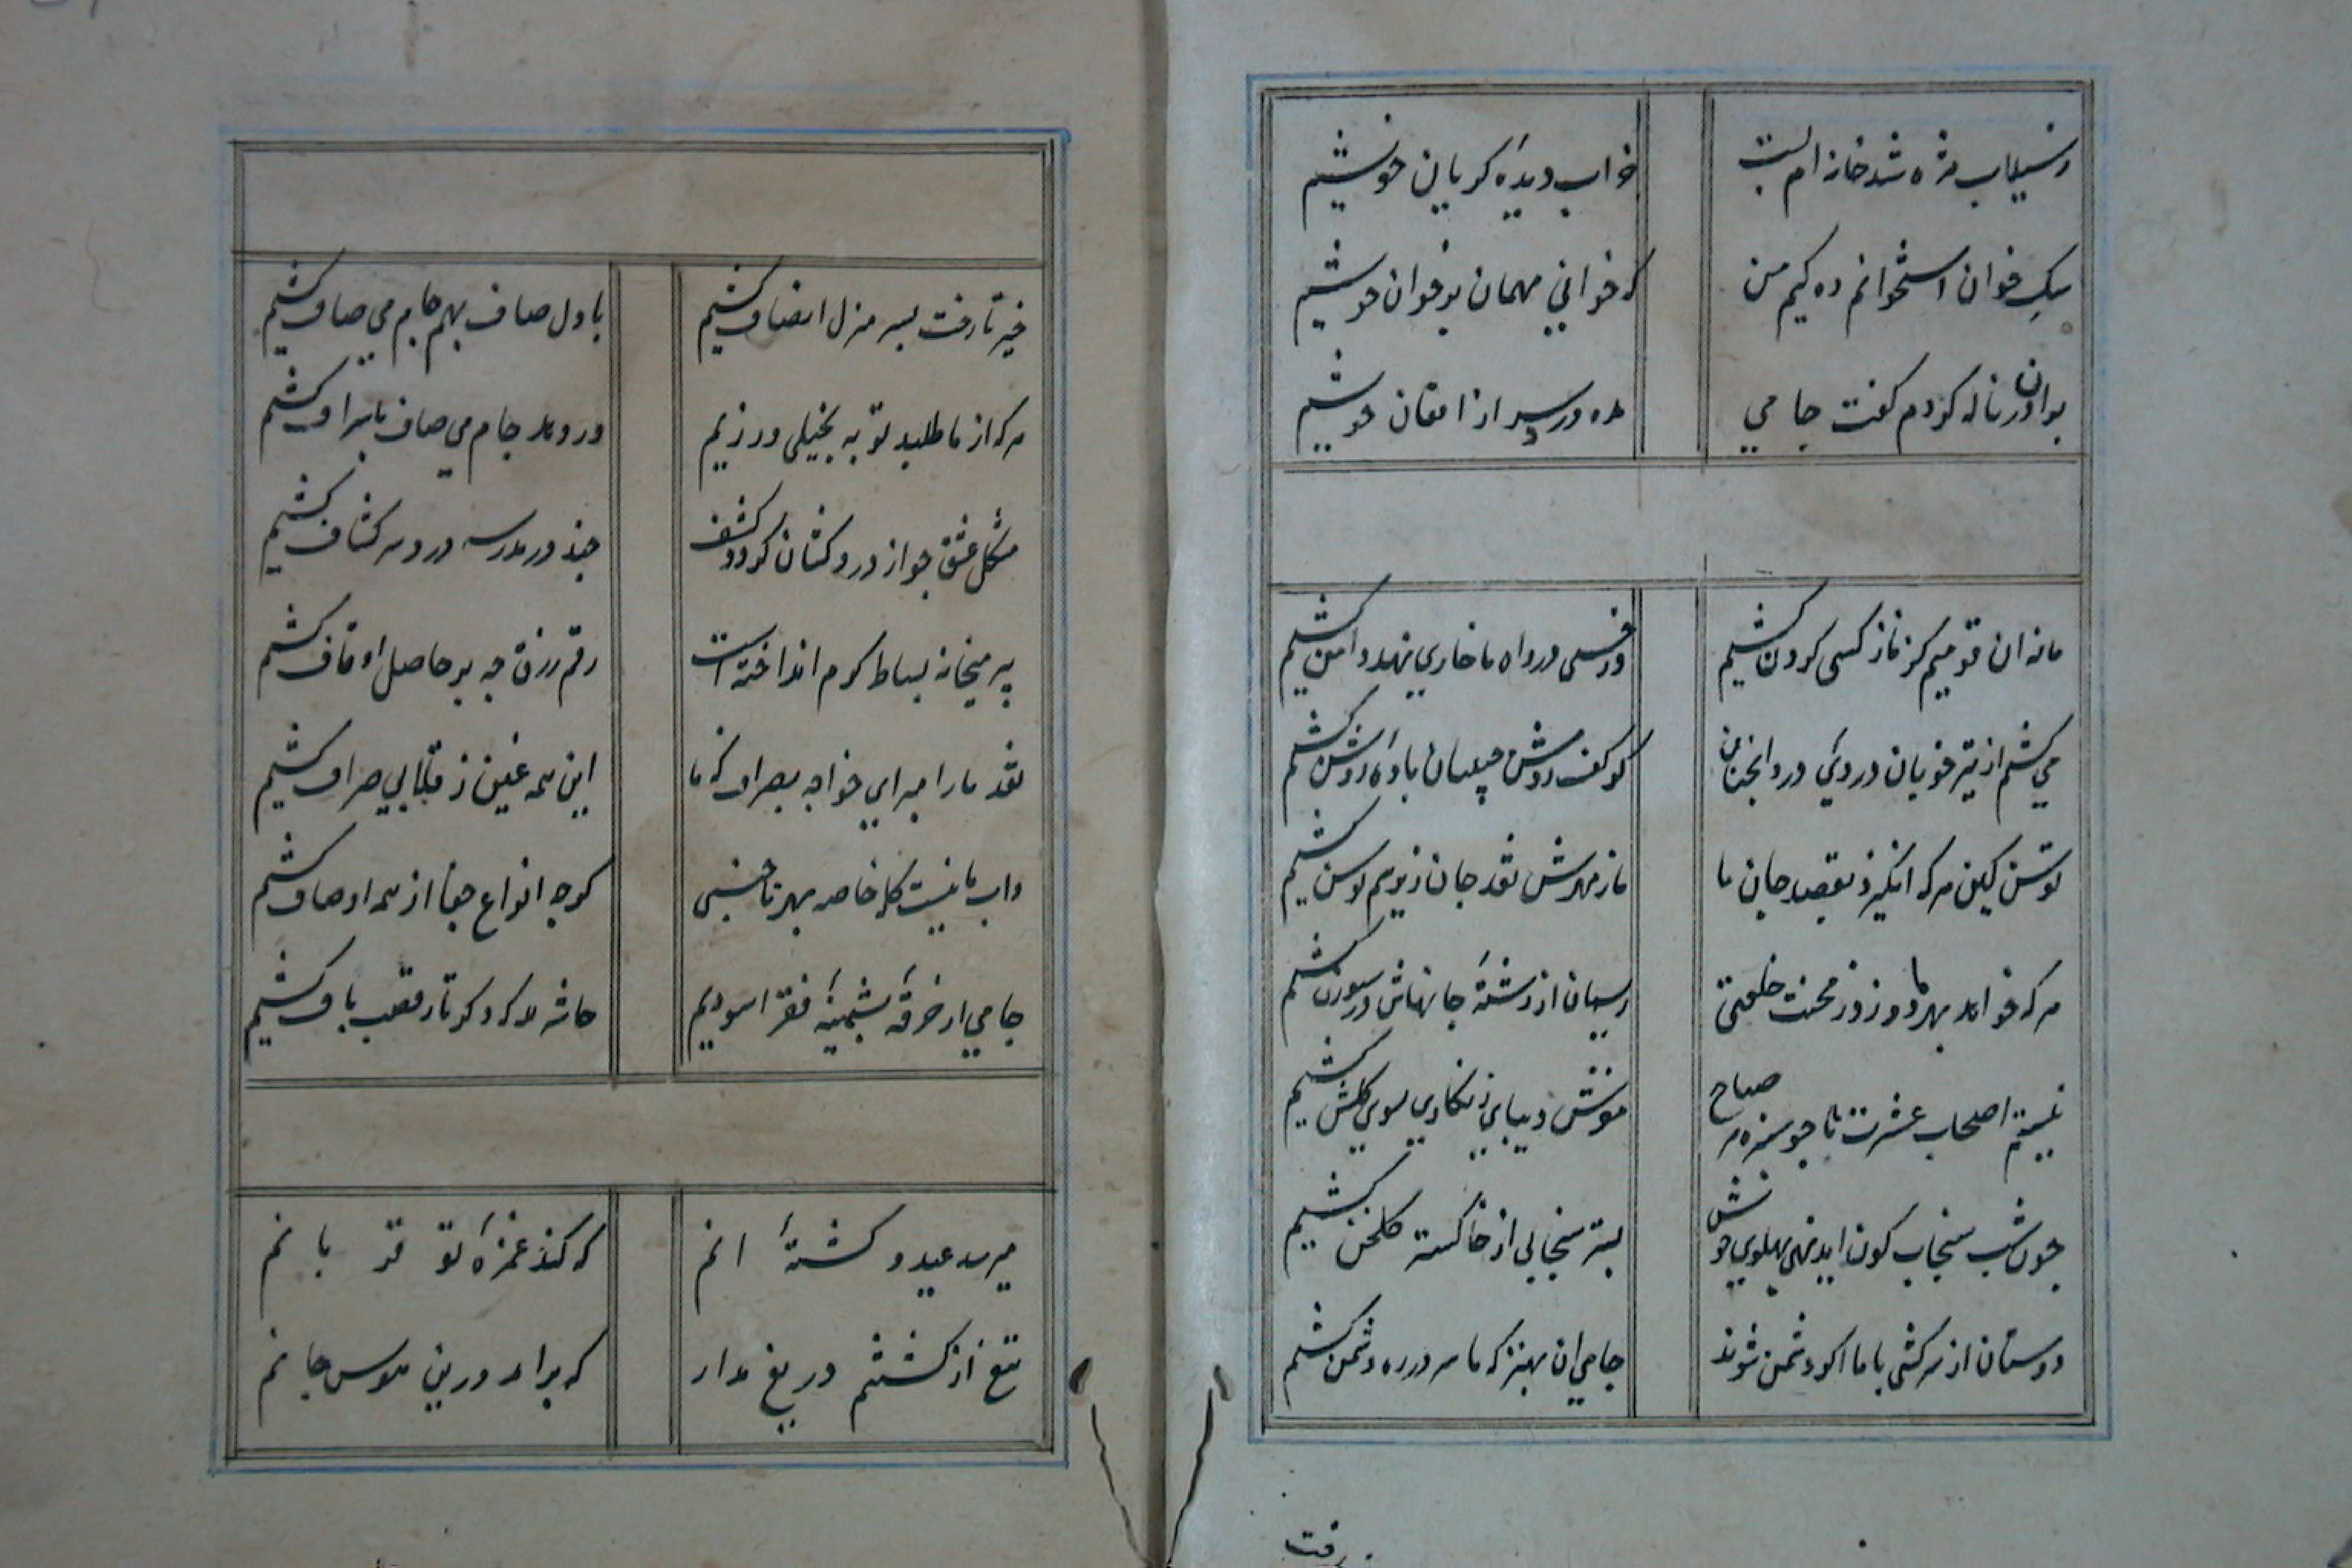 ز سیلاب مژه شد خانه ام پست
خراب دیدهٔ کریان خویشیم
سک خوان استخوانم ده کیم من
که خوانی میهمان بر خوان خویشیم
بر ان در ناله کردم کفت جامی
مده دردسر از افغان خویشیم
ما نه ان قومیم کز ناز کسی کردن کشیم
ور خسی در راه ما خاری نهد دامن کشیم
می کشیم از تیره خویان دردی درد انچنان
کز کف روشن جبینان بادهٔ روشن کشیم
توسن کین هر که انکیزد بقصد جان ما
ما ز مهرش نقد جان زیر سم توسن کشیم
هر که خواهد بهر ما دوزد ز محنت خلعتی
ریسمان از رشتهٔ جانهاش در سوزن کشیم
نیستیم اصحاب عشرت تا چو سبزه هر صباح
مفرش دیبای زنکاری سوی کلشن کشیم
چون شب سنجاب کون اید نهی پهلوی خویش
بستر سنجابی از خاکستر کلخن کشیم
دوستان از سرکشی با ما اکر دشمن شوند
جامی ان بهتر که ما سر در ره دشمن کشیم
رفت
خیز تا رخت بسر منزل انصاف کشیم
با دل صاف بهم جام می صاف کشیم
هر که از ما طلبد توبه بخیلی ورزیم
ور دهد جام می صاف باسراف کشیم
مشکل عشق چو از دردکشان کردد کشف
چند در مدرسه دردسر کشاف کشیم
پیر میخانه بساط کرم انداخته است
رقم رزق چه بر حاصل اوقاف کشیم
نقد ما را مبر ای خواجه بصراف که ما
این همه غبن ز قلابی صراف کشیم
داب ما نیست کله خاصه بهر ناجنسی
کرچه انواع جفا از همه اوصاف کشیم
جامی از خرقهٔ پشمینهٔ فقر اسودیم
حاش لله که دکر ناز قصب باف کشیم
میرسد عید و کشتهٔ انم
که کند غمزهٔ تو قربانم
تیغ از کشتنم دریغ مدار
که براید درین هوس جانم